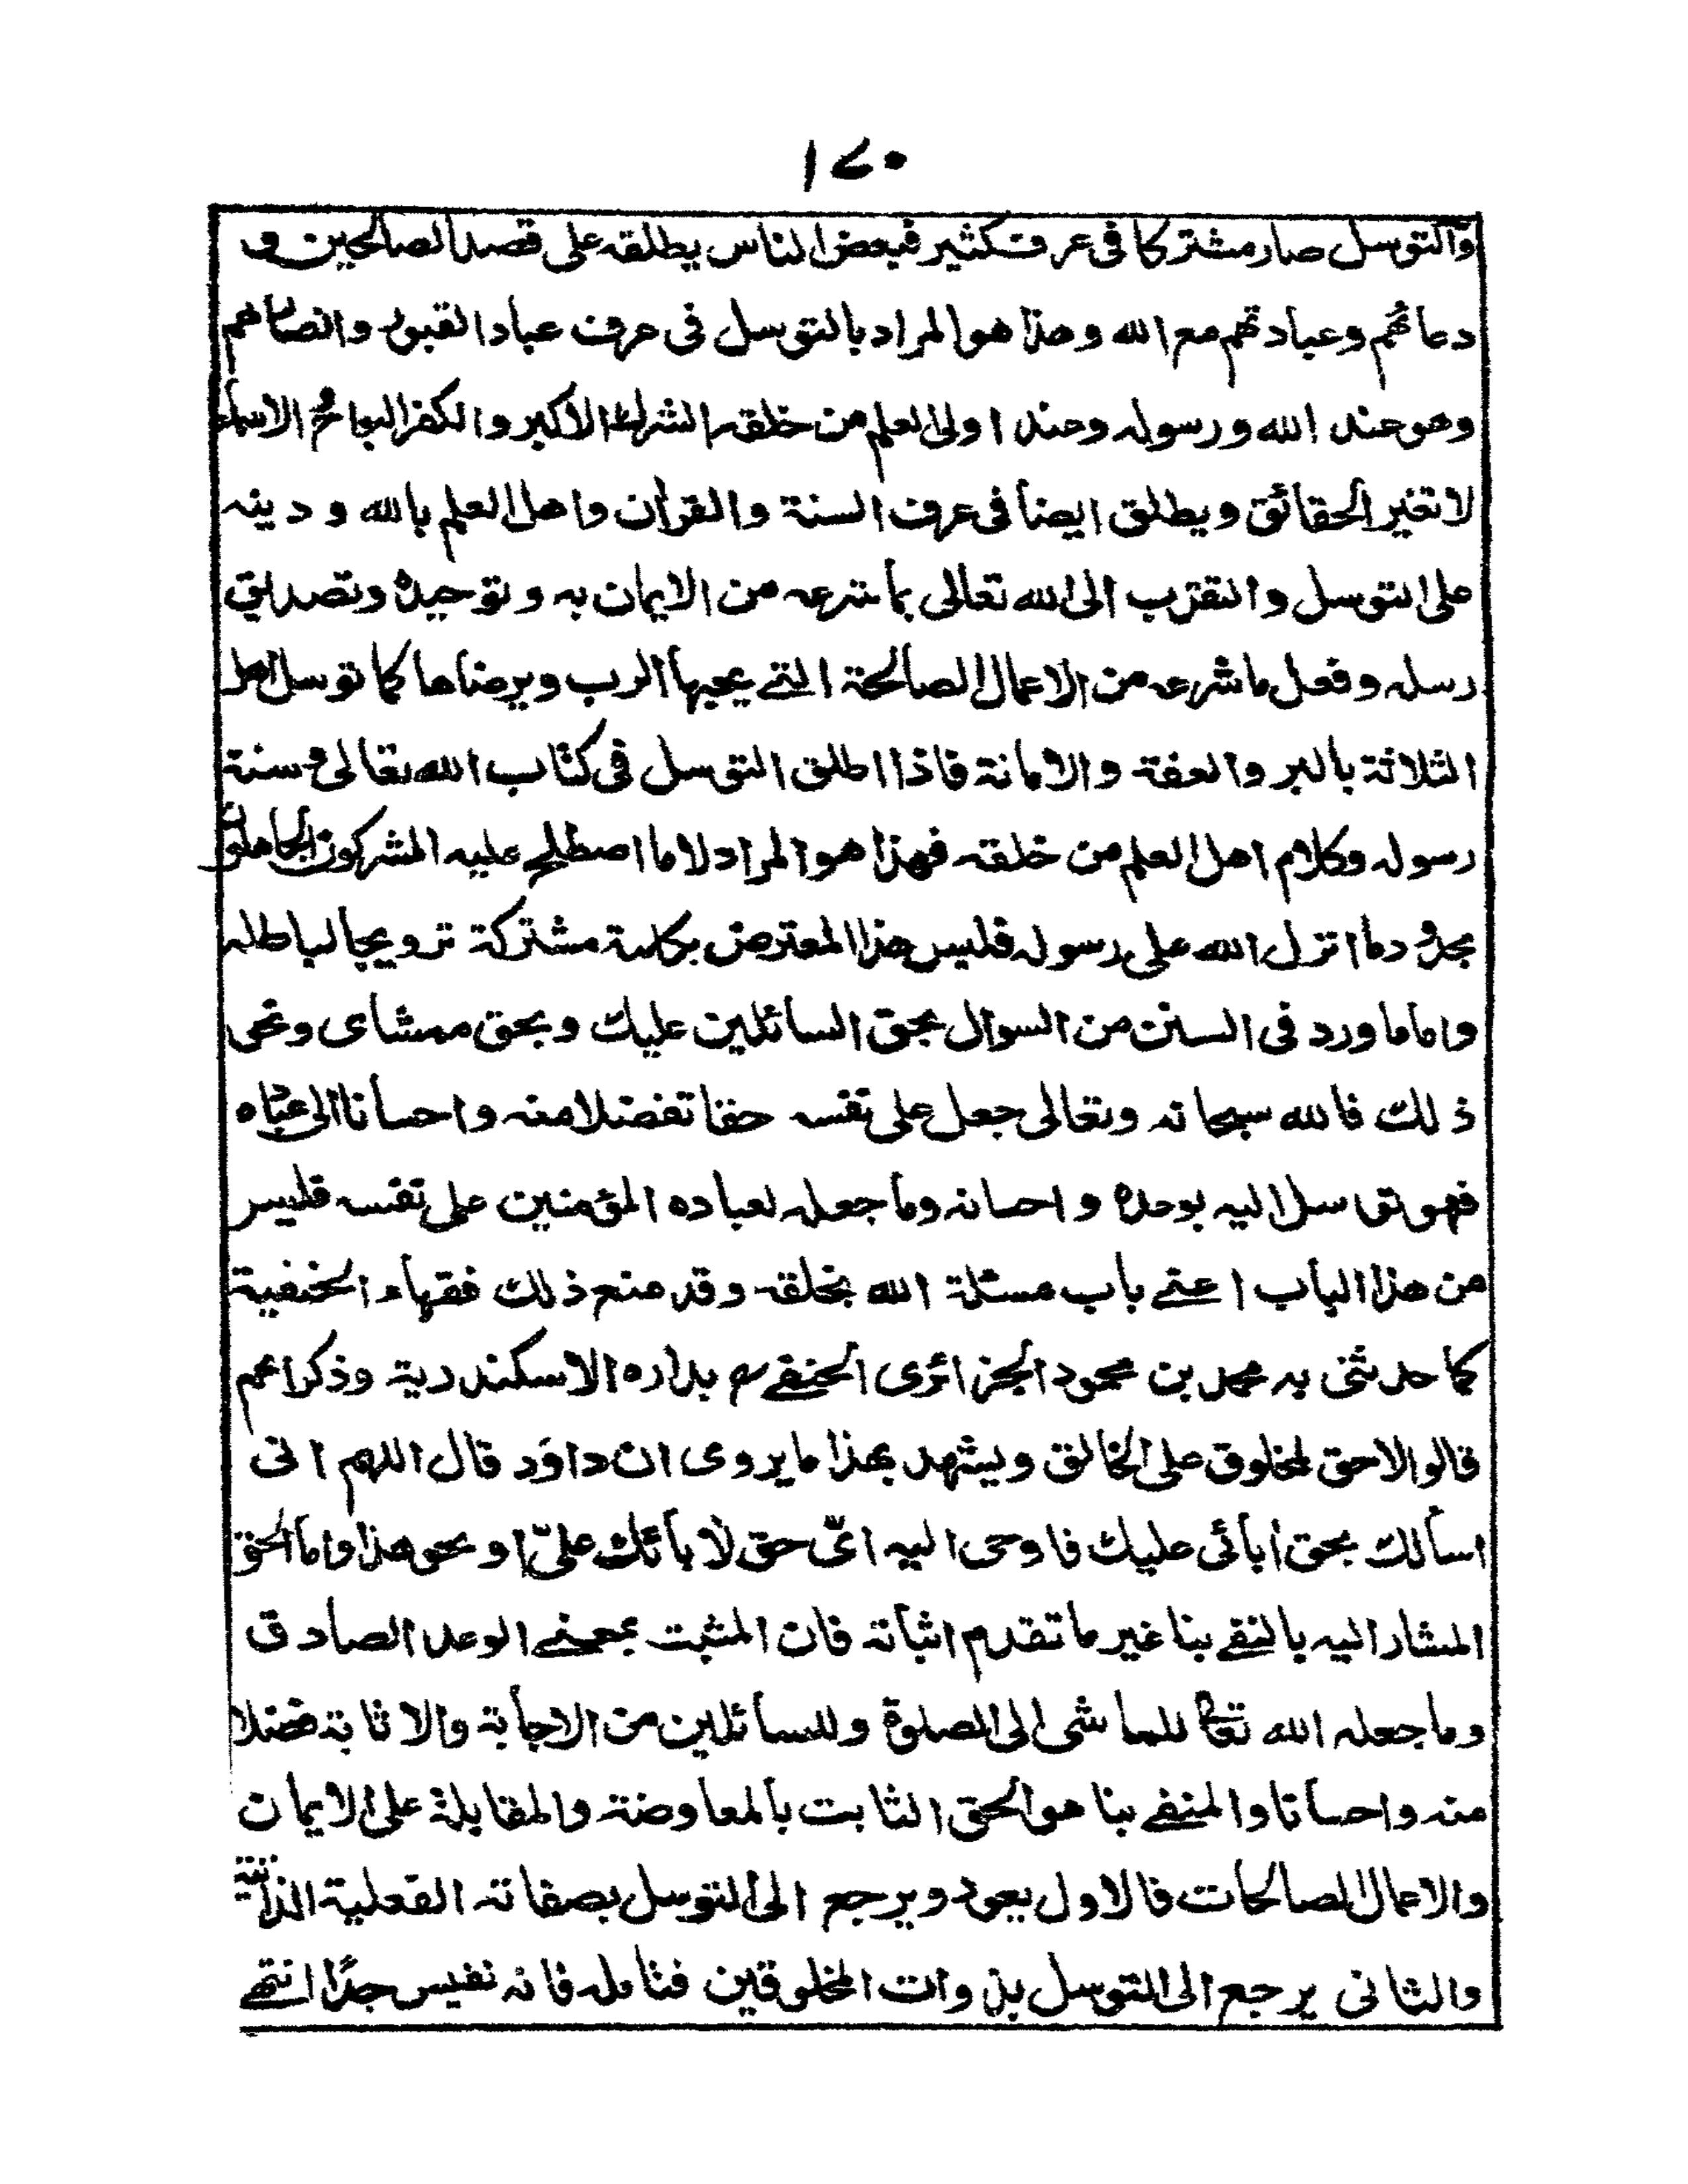 ١٧٠
والتوسل صار مشتركا في عرف كثير فبعض الناس يطلقه على قصد الصالحين و
دعائهم وعبادتهم مع الله وهذا هو المراد بالتوسل في عرف عباد القبور وانصارهم
وهو عند الله ورسوله وعند اولى العلم من خلقه الشرك الاكبر والكفر البواح والاسماء
لا تغير الحقائق ويطلق ايضا في عرف السنة والقرآن واهل العلم بالله ودينه
على التوسل والتقرب الى الله تعالى بما شرعه من الايمان به وتوحيده وتصديق
رسله وفعل ما شرعه من الاعمال الصالحة التي يحبها الرب ويرضاها كما توسل اهل
الثلاثة بالبر والعفة والامانة فاذا اطلق التوسل في كتاب الله تعالى وسنة
رسوله وكلام اهل العلم من خلقه فهذا هو المراد لا ما اصطلح عليه المشركون الجاهلون
بحدود ما انزل الله على رسوله فلبس هذا المعترض بكلمة مشتركة ترويجا لباطله
واما ما ورد في السنن من السوال بحق السائلين عليك وبحق ممشاى ونحى
ذلك فالله سبحانه وتعالى جعل على نفسه حقا تفضلا منه واحسانا الى عباده
فهو توسل اليه بوعده واحسانه وما جعله لعباده المؤمنين على نفسه فليس
من هذا الباب اعنى باب مسئلة الله بخلقه وقد منع ذلك فقهاء الحنفية
كما حدثنى به محمد بن محمود الجزائرى الحنفى رح بداره الاسكندرية وذكر انهم
قالوا لا حق لمخلوق على الخالق ويشهد بهذا ما يروى ان داود قال اللهم انى
اسألك بحق اٰبائى عليك فاوحى اليه اىّ حق لاٰبائك علىّ او نحو هذا واما الحق
المشار اليه بالنفى ههنا غير ما تقدم اثباته فان المثبت بمعنى الوعد الصادق
وما جعله الله تعالى للماشى الى الصلوة وللسائلين من الاجابة والاثابة فضلا
منه واحسانا والمنفى هنا هو الحق الثابت بالمعاوضة والمقابلة على الايمان
والاعمال الصالحات فالاول يعود ويرجع الى التوسل بصفاته الفعلية الذاتية
والثانى يرجع الى التوسل بذوات المخلوقين فتامله فانه نفيس جدًا انتهى